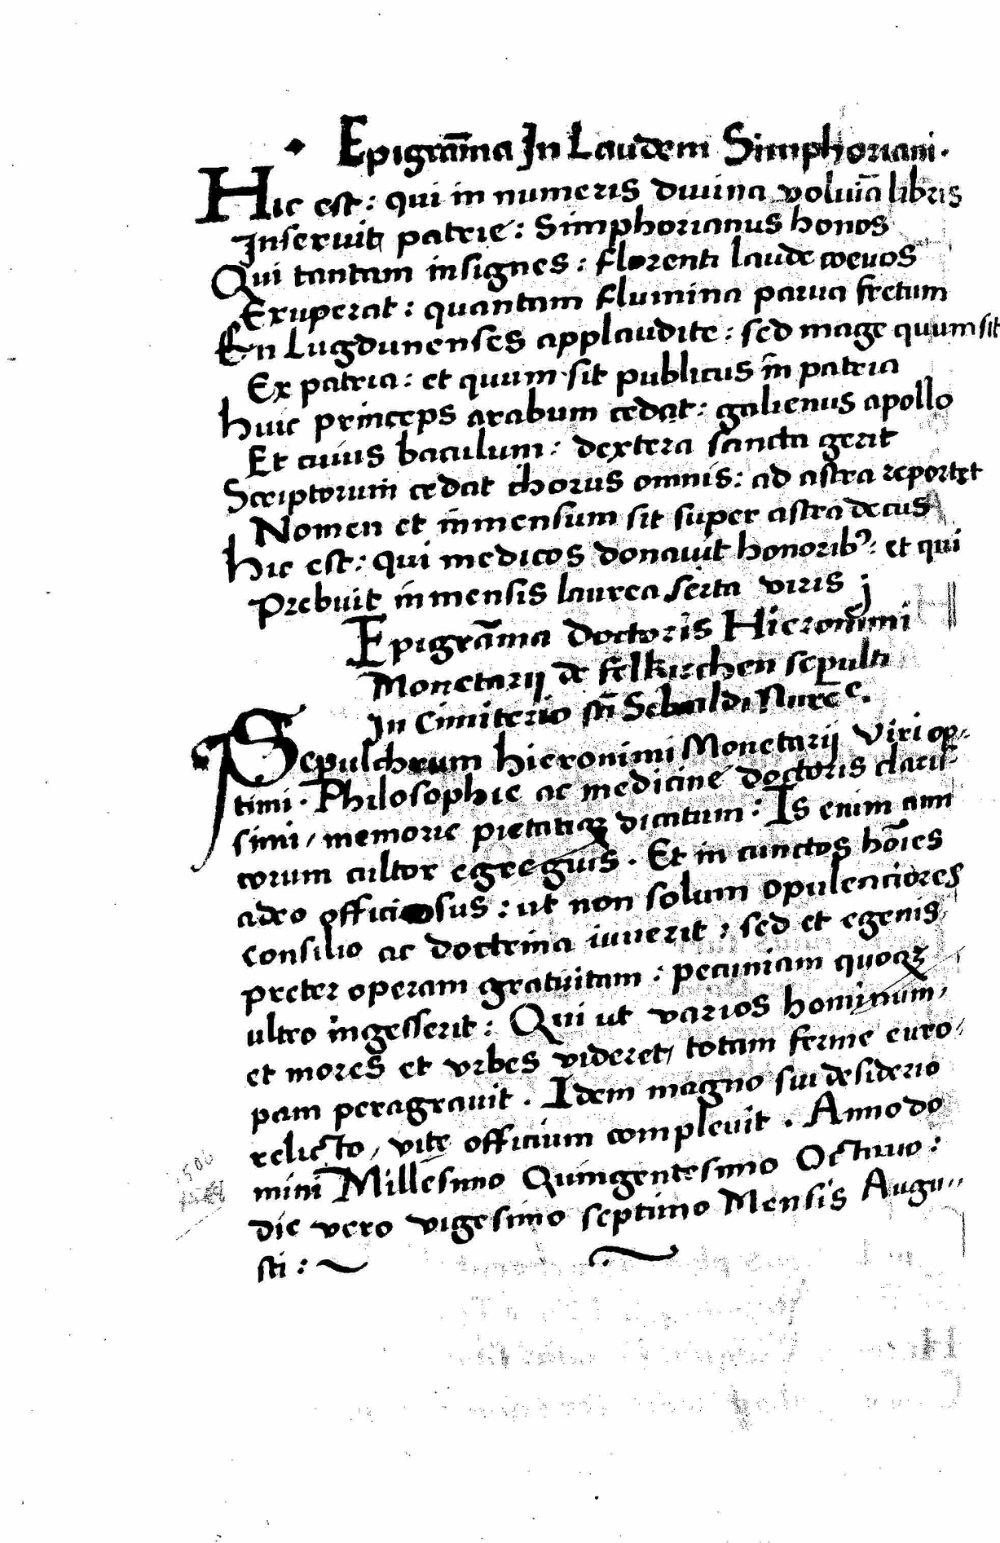 Epigrãma In Laudem Simphoriani.
Hic est: qui in numeris divina voluĩa libris
Inseruit patrie: Simphorianus honos
Qui tantam insignes: florenti laude coevos
Exuperat: quantam flumina parva fretum
En Lugdunenses applaudite: sed mage quum sit
Ex patria: et quum sit publicus in patria
huic princeps arabum cedat: galienus apollo
Et cuius baculum: dextera sancta gerit
Scriptorum cedat chorus omnis: ad astra reportet
Nomen et inmensum sit super astra decus
hic est: qui medicos donavit honoribꝰ: et qui
Prebuit inmensis laurea serta viris ;
Epigrãma doctoris Hieronimi
Monetarij de felkirchen sepulti
In Cimiterio sti Sebaldi Nurē.
Sepulchrum hieronimi Monetarij Viri op-
timi. Philosophie ac medicine doctoris claris-
simi, memorie pietatiqꝫ dicatum: Is enim ami
corum cultor egregius. Et in cunctos hoĩes
adeo officiosus: ut non solum opulenciores
consilio ac doctrina iuverit; sed et egenis,
preter operam gratuitam: pecuniam quoqꝫ
ultro ingesserit: Qui ut varios hominum,
et mores et vrbes videret, totam ferme euro,
pam peragravit. Idem magno sui desiderio
relicto, vite officium complevit. Anno do
mini Millesimo Quingentesimo Octavo:
die vero vigesimo septimo Mensis Augu,,
sti: